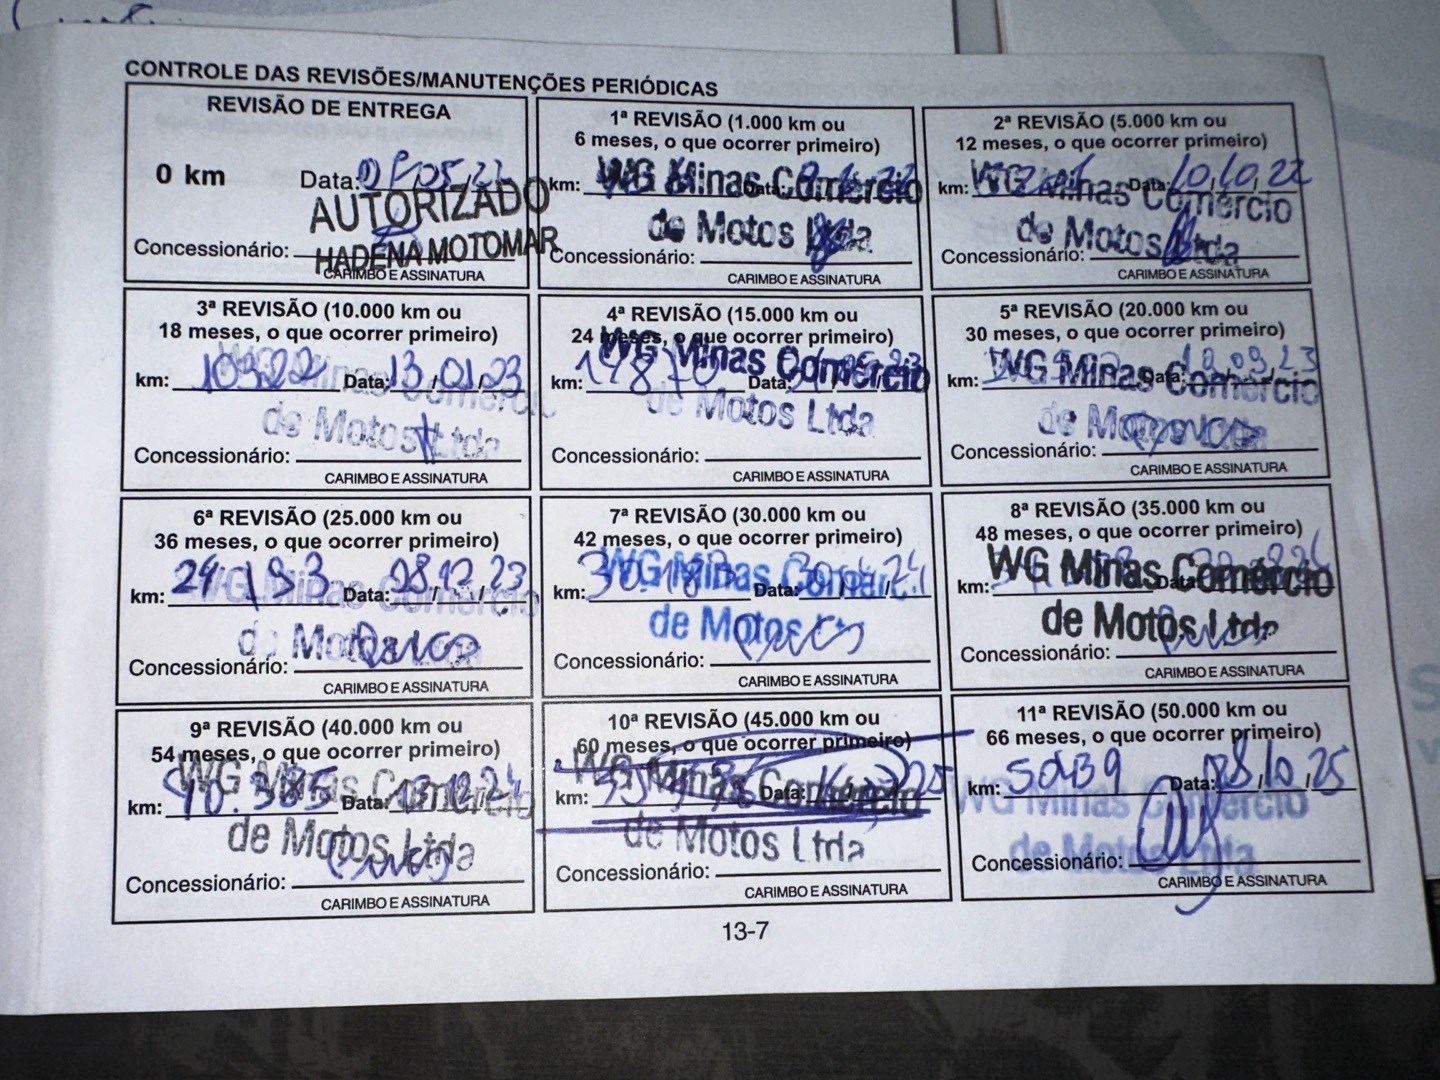 CONTROLE DAS REVISÕES/MANUTENÇÕES PERIÓDICAS
REVISÃO DE ENTREGA
0 km
Data: 05 22
AUTORIZADO
HADENA MOTOMAR
Concessionário:
CARIMBO E ASSINATURA
1ª REVISÃO (1.000 km ou
6 meses, o que ocorrer primeiro)
km: Data:
WG Minas Comercio
de Motos Ltda
Concessionário:
CARIMBO E ASSINATURA
2ª REVISÃO (5.000 km ou
12 meses, o que ocorrer primeiro)
km: Data: 10/10/22
WG Minas Comercio
de Motos Ltda
Concessionário:
CARIMBO E ASSINATURA
3ª REVISÃO (10.000 km ou
18 meses, o que ocorrer primeiro)
km: Data: 13/01/23
WG Minas Comercio
de Motos Ltda
Concessionário:
CARIMBO E ASSINATURA
4ª REVISÃO (15.000 km ou
24 meses, o que ocorrer primeiro)
km: 14870 Data:
WG Minas Comercio
de Motos Ltda
Concessionário:
CARIMBO E ASSINATURA
5ª REVISÃO (20.000 km ou
30 meses, o que ocorrer primeiro)
km: Data: 09 23
WG Minas Comercio
de Motos
Concessionário:
CARIMBO E ASSINATURA
6ª REVISÃO (25.000 km ou
36 meses, o que ocorrer primeiro)
km: Data: 08/12/23
WG Minas Comercio
de Motos
Concessionário:
CARIMBO E ASSINATURA
7ª REVISÃO (30.000 km ou
42 meses, o que ocorrer primeiro)
km: Data:
WG Minas Comercio
de Motos
Concessionário:
CARIMBO E ASSINATURA
8ª REVISÃO (35.000 km ou
48 meses, o que ocorrer primeiro)
km: Data:
WG Minas Comercio
de Motos Ltda
Concessionário:
CARIMBO E ASSINATURA
9ª REVISÃO (40.000 km ou
54 meses, o que ocorrer primeiro)
km: Data: 13/12/24
WG Minas Comercio
de Motos Ltda
Concessionário:
CARIMBO E ASSINATURA
10ª REVISÃO (45.000 km ou
60 meses, o que ocorrer primeiro)
km: Data:
WG Minas Comercio
de Motos Ltda
Concessionário:
CARIMBO E ASSINATURA
11ª REVISÃO (50.000 km ou
66 meses, o que ocorrer primeiro)
km: 50139 Data: 08/10/25
WG Minas Comercio
de Motos Ltda
Concessionário:
CARIMBO E ASSINATURA
13-7